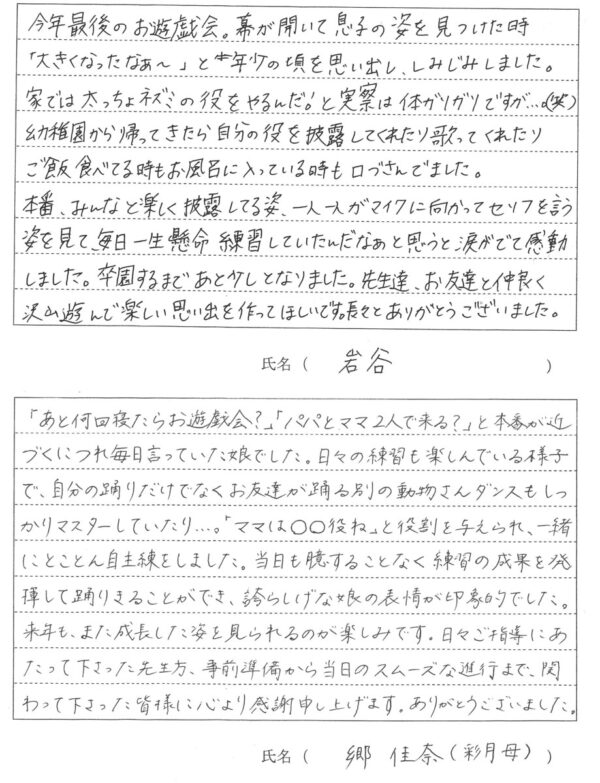 今年最後のお遊戯会。幕が開いて息子の姿を見つけた時
「大きくなったなあ～」と年少の頃を思い出し、しみじみしました。
家では太っちょネズミの役をやるんだ!と実際は体がリガリですが…(笑)
幼稚園から帰ってきたら自分の役を披露してくれたり歌ってくれたり
ご飯食べてる時もお風呂に入っている時も口づさんでました。
本番、みんなと楽しく披露してる姿、一人一人がマイクに向かってセリフを言う
姿を見て、毎日一生懸命練習していたんだなぁと思うと涙がでて感動
しました。卒園するまであと少しとなりました。先生達、お友達と仲良く
沢山遊んで楽しい思い出を作ってほしいです。長々とありがとうございました。
氏名( 岩谷 )
「あと何回寝たらお遊戯会?」「パパとママ2人で来る?」と本番が近
づくにつれ毎日言っていた娘でした。日々の練習も楽しんでいる様子
で、自分の踊りだけでなくお友達が踊る別の動物さんダンスもしっ
かりマスターしていたり…。「ママは〇〇役ね」と役割を与えられ、一緒
にとことん自主練をしました。当日も臆することなく練習の成果を発
揮して踊りきることができ、誇らしげな娘の表情が印象的でした。
来年も、また成長した姿を見られるのが楽しみです。日々ご指導にあ
たって下さった先生方、事前準備から当日のスムーズな進行まで、関
わって下さった皆様に心より感謝申し上げます。ありがとうございました。
氏名( 郷 佳奈(彩月母) )